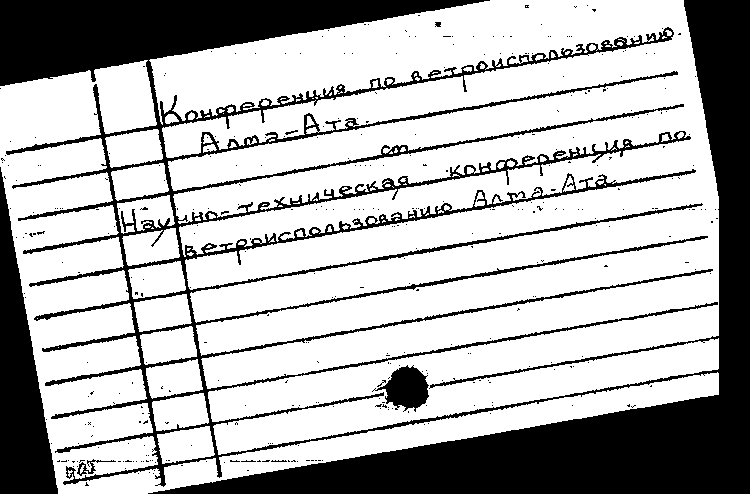 Конференция по ветроиспользованию.
Алма-Ата.
см
Научно-техническая конференция по
ветроиспользованию Алма-Ата.